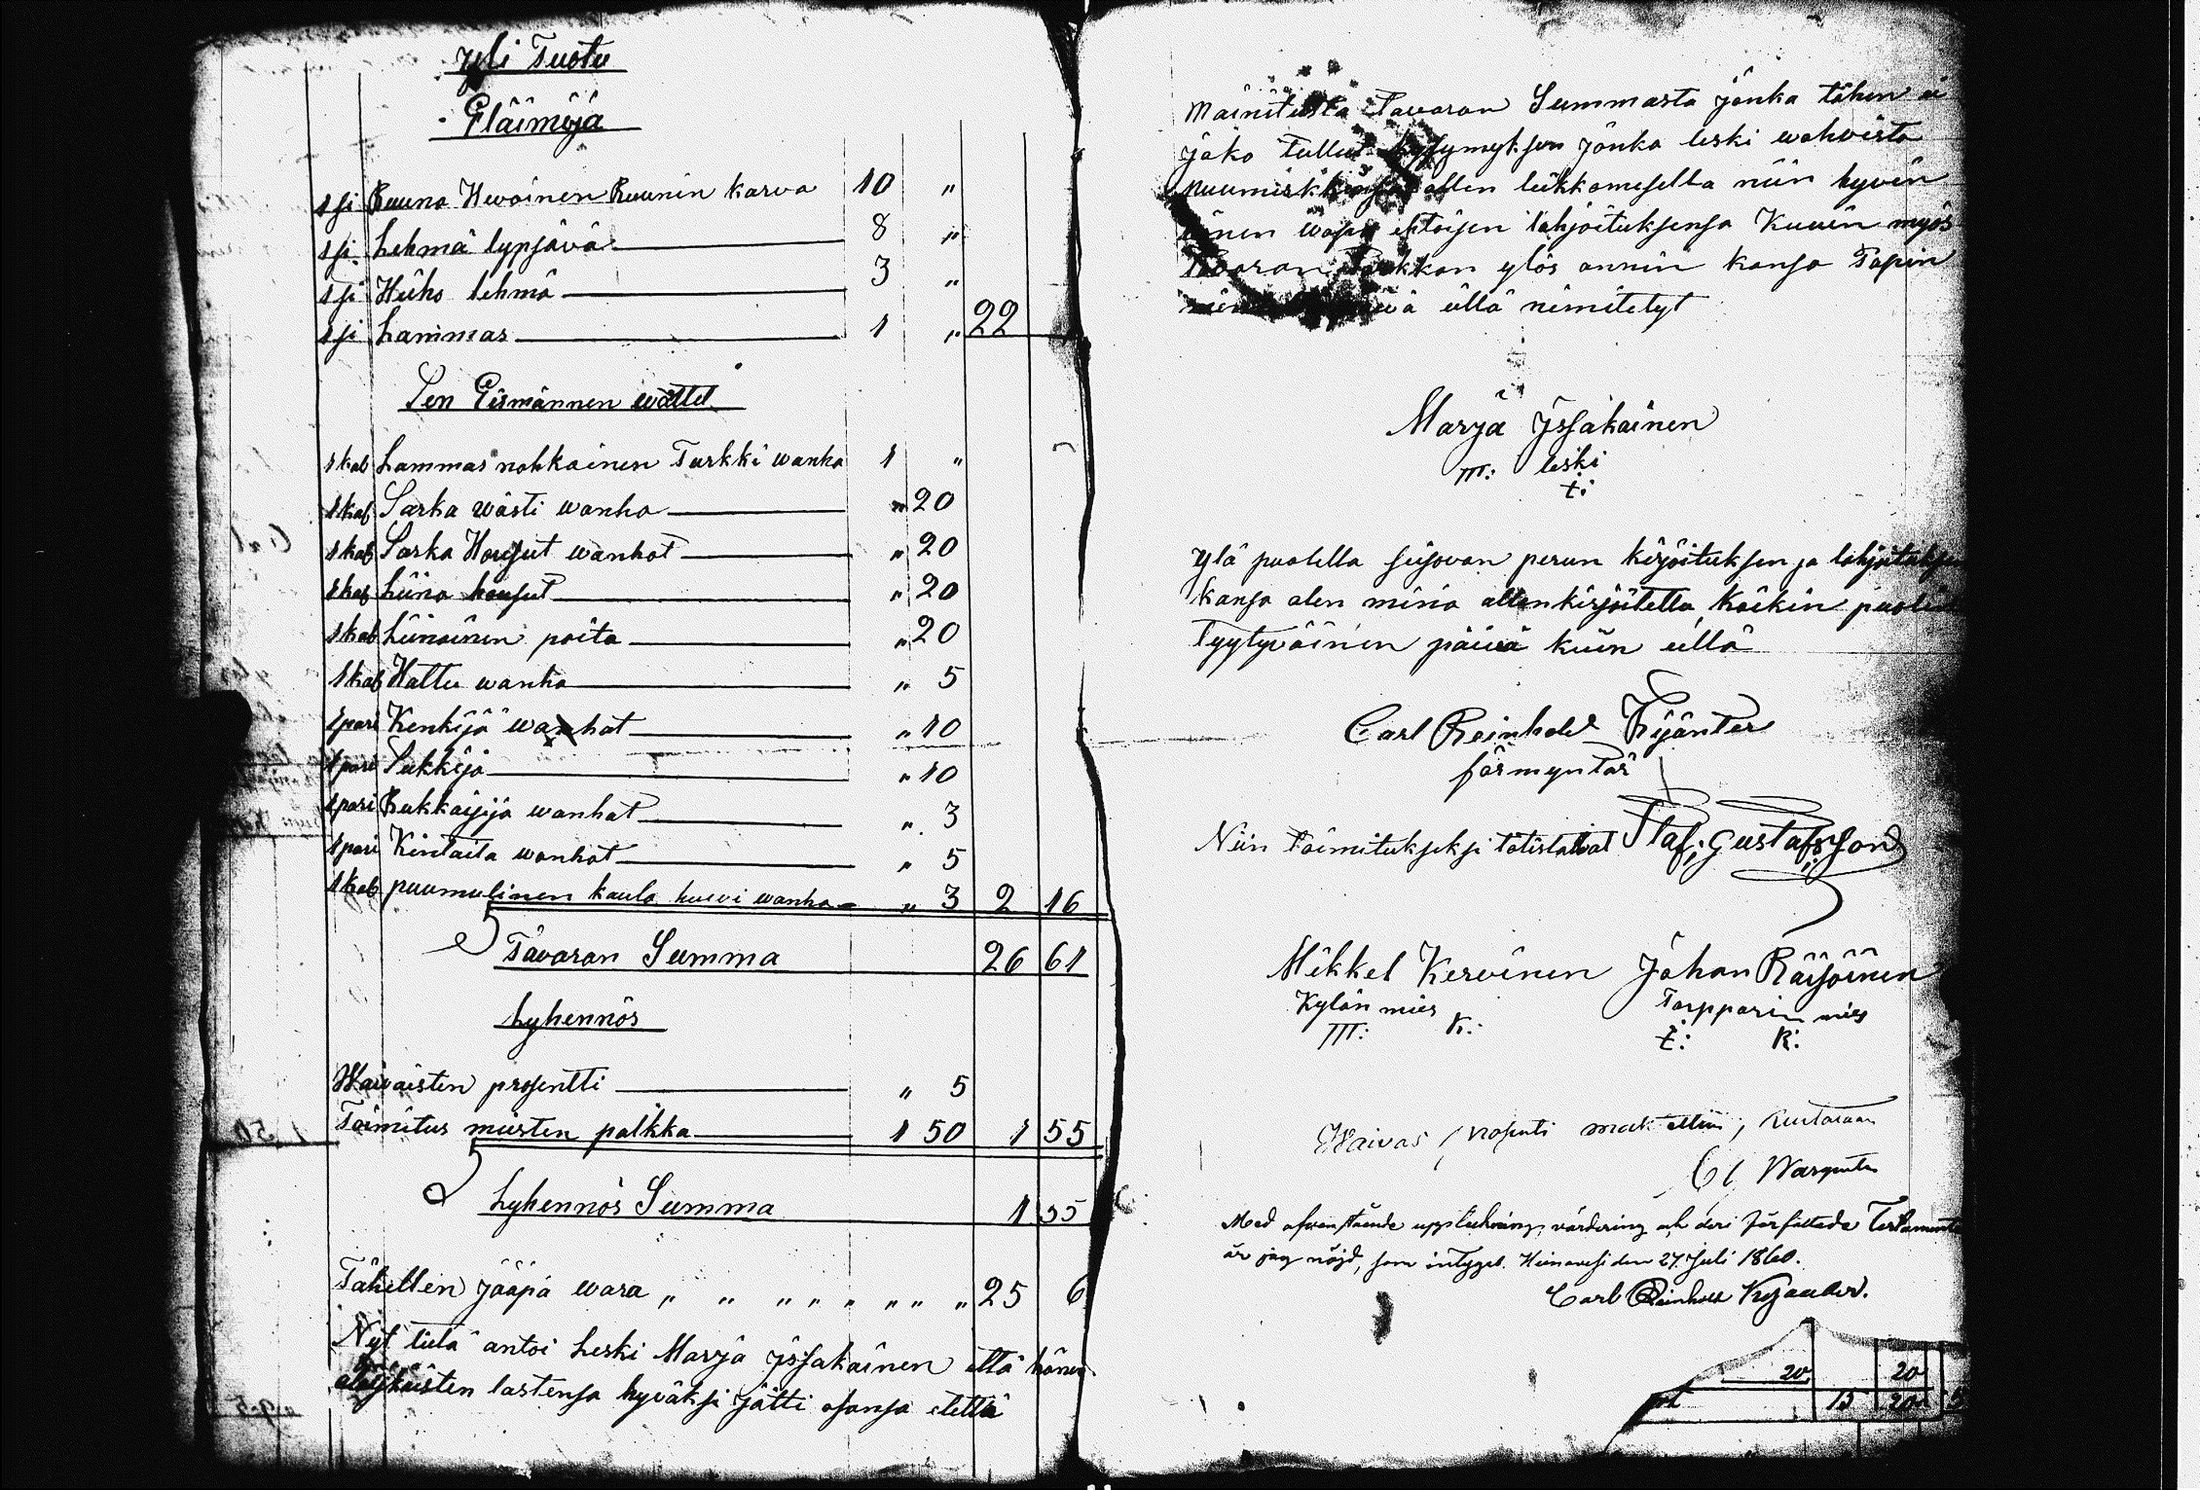 Yli Tuotu
Eläimöjä
1 ſi Ruuna Hevoinen Ruunin karva 10 "
1 ſi Lehmä lypsävä 8 "
1 ſi Hiiho lehmä 3 "
1 ſi Lammas 1 " 22
Sen Eismännen wattet
1 kal Lammas nahkainen Turkki wanha 1 "
1 kal Sarka wästi wanha " 20
1 kal Sarka Housut wanhat " 20
1 kal Liina housut " 20
1 kal Liinainen paita " 20
1 kal Hattu wanha " 5
1 pari Kenkijä wanhat " 10
1 pari Sukkija " 10
1 pari Rukkaisija wanhat " 3
1 pari Kintaita wanhat " 5
1 kal puumulinen kaula huivi wanha " 3 2 16
Tavaran Summa 26 61
Lyhennös
Waivaisten prosentti " 5
Toimitus miesten palkka 1 50 1 55
Lyhennös Summa 1 55
Tähellen Jääpä wara " " " " " " " " 25 6
Nyt tulä antoi Leski Marja Issakainen että hänen
lastensa hyväksi jätti osansa että
Mainitusta Tavaran Summasta jonka tähen ei
Jako tullut kysymyksen Jonka leski wahvista
puumerkkinsä allen liikkamisella niin hyvin
ehtoisen lahjoituksensa Kuuin myös
ylös annin kansa Tapin
illä nimitetyt
Marja Issakainen
m: leski
t:
Ylä puolella seisovan perun kirjoituksen ja lahjoituksen
kansa olen minä allenkirjoitettu kaikin puolin
Tyytyväinen päiwä kuin illä
Carl Reinhold Kijänter
förmyntär
Niin toimitukseksi totistavat Staf: Gustafsson
Mikkel Kervinen Johan Räisöinen
Kylän mies Torpparin mies
m: K: t: K:
Waivas prosenti
Med ofvanstående uppteckning, värdering och deri författade Testamente
är jag nöjd, som intygas. Heinavesi den 27 Juli 1860.
Carl Reinhold Kyander.
20 20
13 20